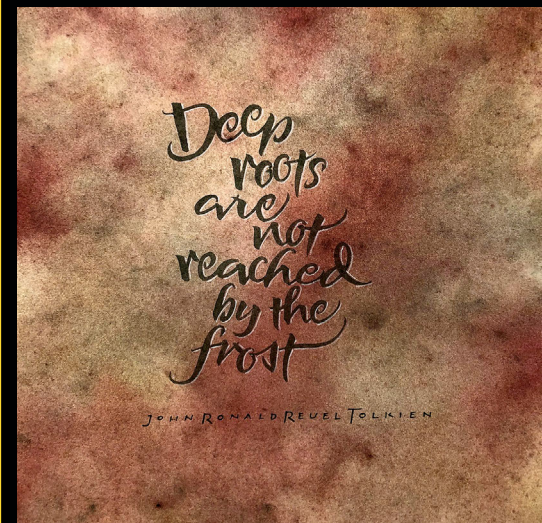 Deep
roots
are
not
reached
by the
frost
JOHN RONALD REUEL TOLKIEN